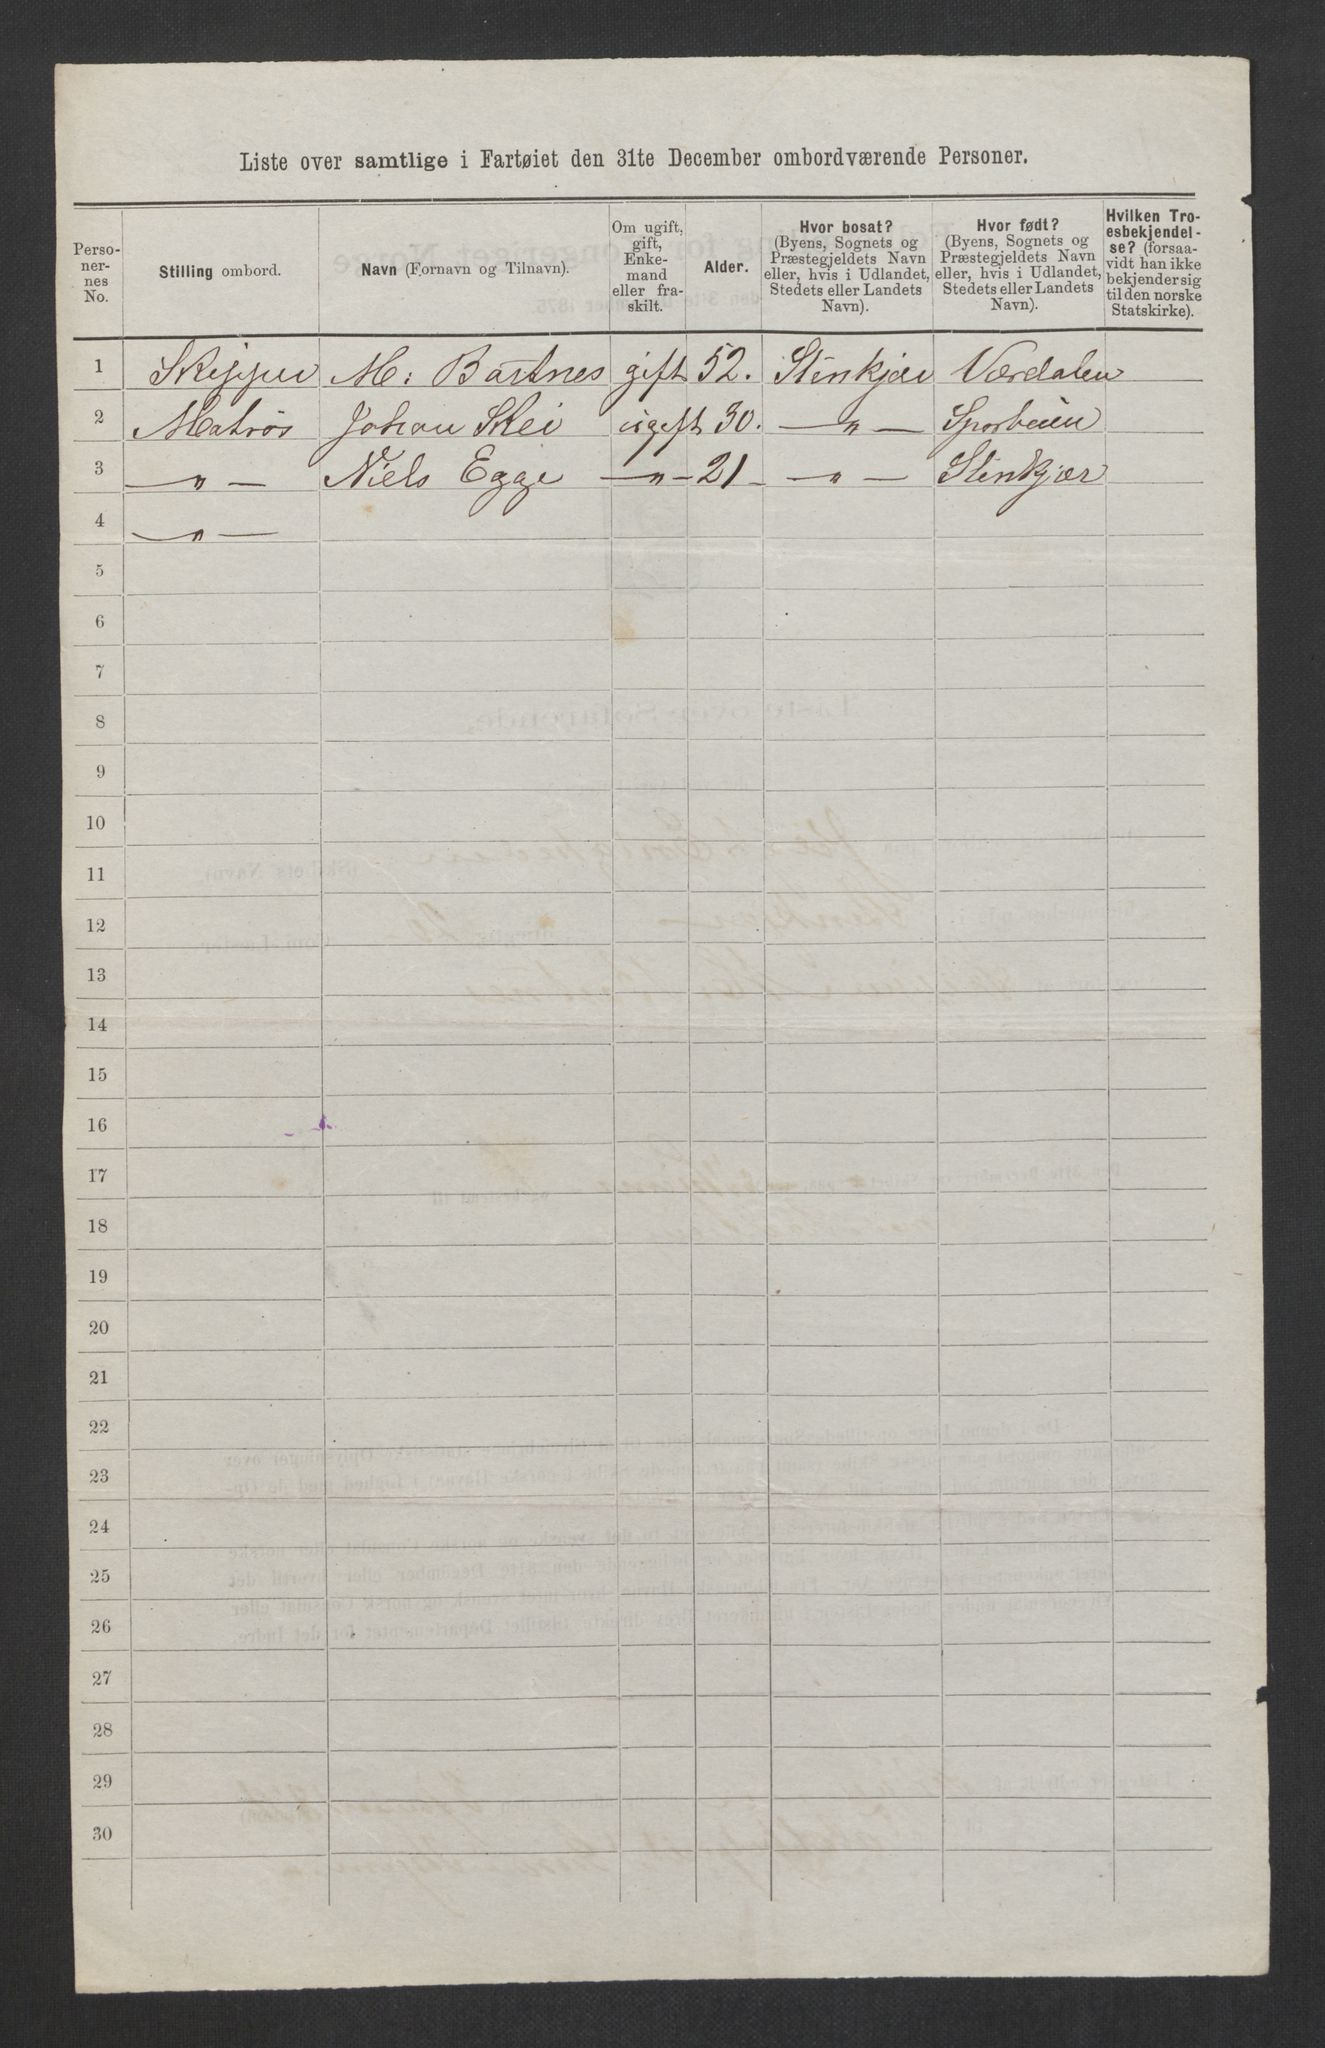 Liste over samtlige i Fartøiet den 31te December ombordværende Personer.
Perso-
ner-
nes
No.
Stilling ombord.
Navn (Fornavn og Tilnavn).
Om ugift,
gift,
Enke-
mand
eller fra-
skilt.
Alder.
Hvor bosat?
(Byens, Sognets og
Præstegjeldets Navn
eller, hvis i Udlandet,
Stedets eller Landets
Navn).
Hvor født?
(Byens, Sognets og
Præstegjeldets Navn
eller, hvis i Udlandet,
Stedets eller Landets
Navn).
Hvilken Tro-
esbekjendel-
se? (forsaa-
vidt han ikke
bekjender sig
til den norske
Statskirke).
1 Skipper M: Bartnes gift 52. Stenkjær Værdalen
2 Matros Johan Skei ugift 30. — " — Sparbuen
3 — " — Niels Egge — " — 21 — " — Stenkjær
4 — " —
5
6
7
8
9
10
11
12
13
14
15
16
17
18
19
20
21
22
23
24
25
26
27
28
29
30